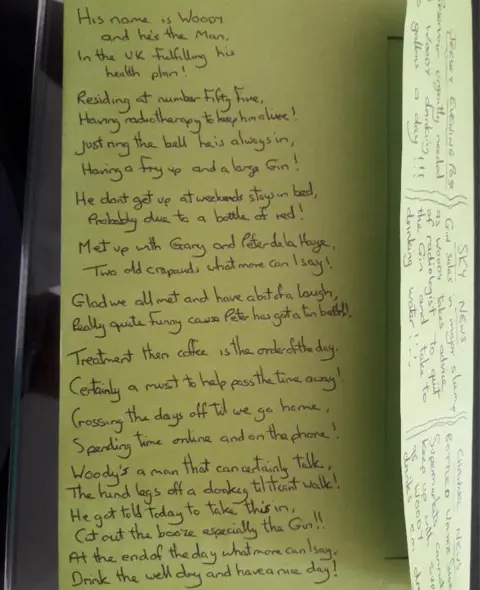 His name is Woody
and he's the Man,
In the UK fulfilling his
health plan!
Residing at number Fifty Five,
Having radiotherapy to keep him alive!
Just ring the bell he is always in,
Having a fry up and a large Gin!
He dont get up at weekends stays in bed,
Probably due to a bottle of red!
Met up with Gary and Peter de la Haye,
Two old crapauds what more can I say!
Glad we all met and have a bit of a laugh,
Really quite funny cause Peter has got a tin bath!!
Treatment then coffee is the order of the day,
Certainly a must to help pass the time away!
Crossing the days off til we go home,
Spending time online and on the phone!
Woody's a man that can certainly talk,
The hind legs off a donkey til it cant walk!
He got told today to take this in,
Cut out the booze especially the Gin!!
At the end of the day what more can I say,
Drink the well dry and have a nice day!
JERSEY EVENING POST
urgently needed
Woody drinking
gallons a day!!!
SKY NEWS
Gin sales in major slump
as Woody takes advice
of radiologist to quit
the Gin and take to
drinking water!!
Channel News
keep up with
Woody
drinks